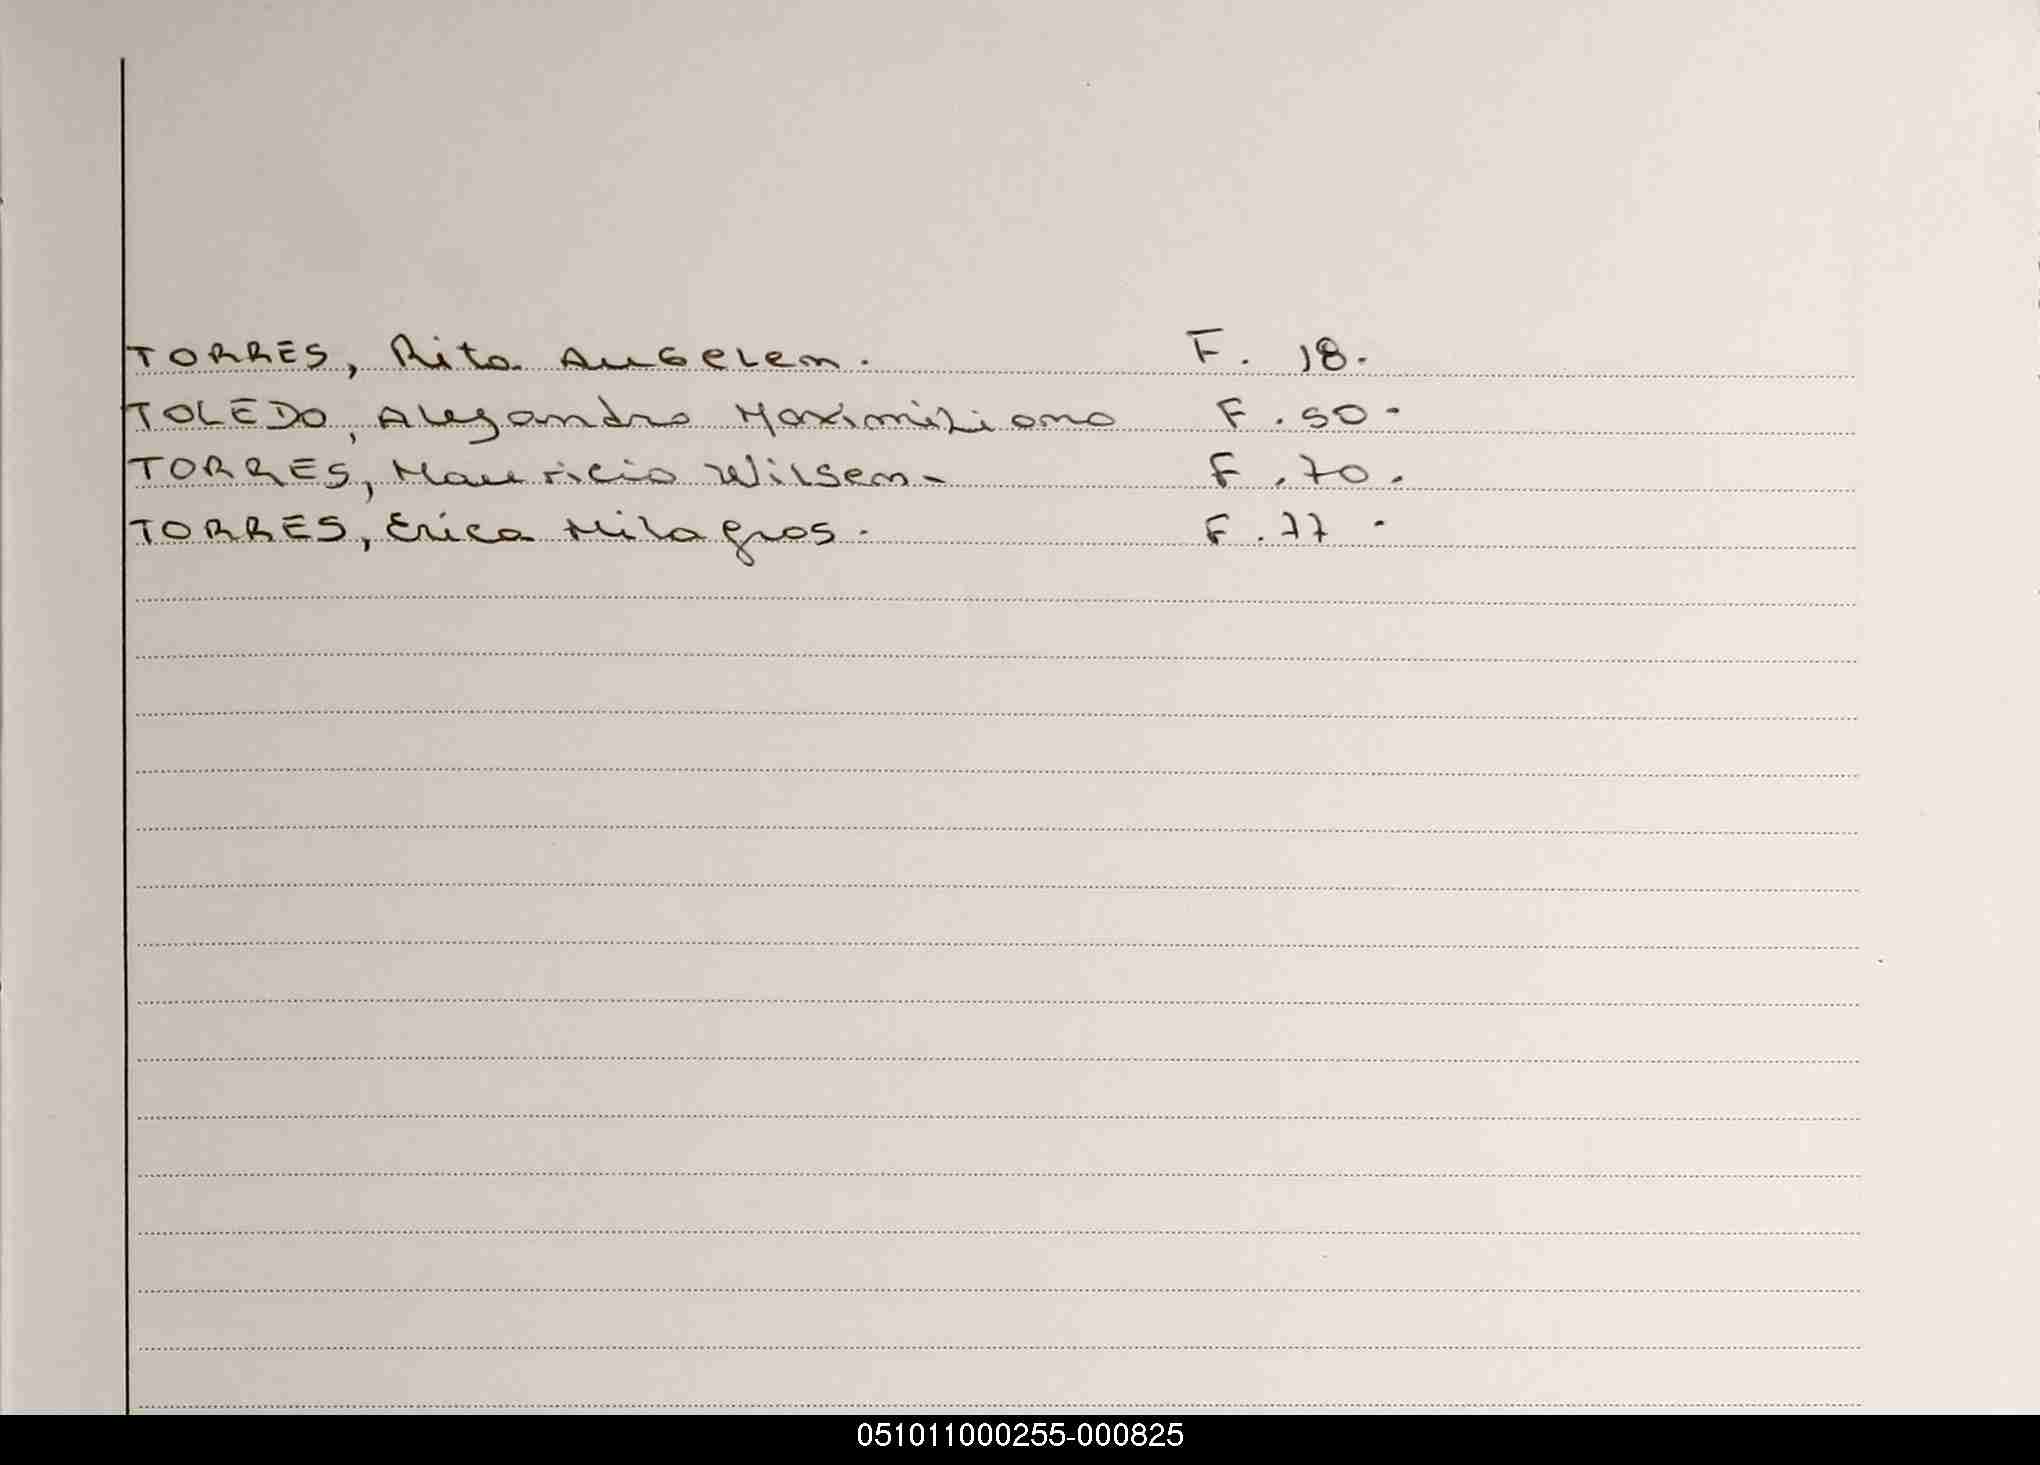 TORRES, Rita Angelen. F. 18.
TOLEDO, Alejandro Maximiliano F. 50.
TORRES, Mauricio Wilsen. F. 70.
TORRES, Erica Milagros. F. 77.
051011000255-000825